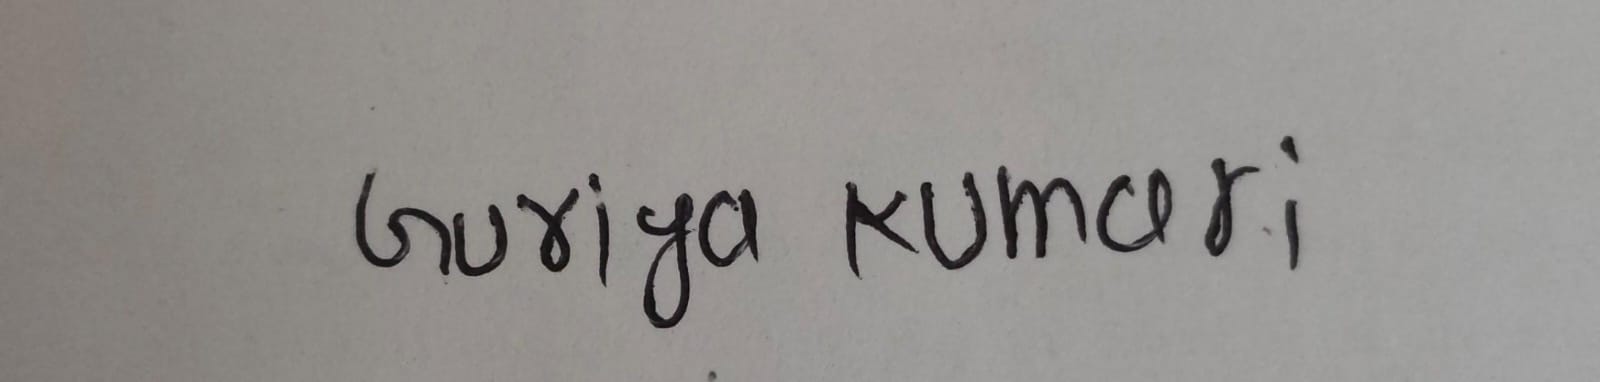 Guriya Kumari